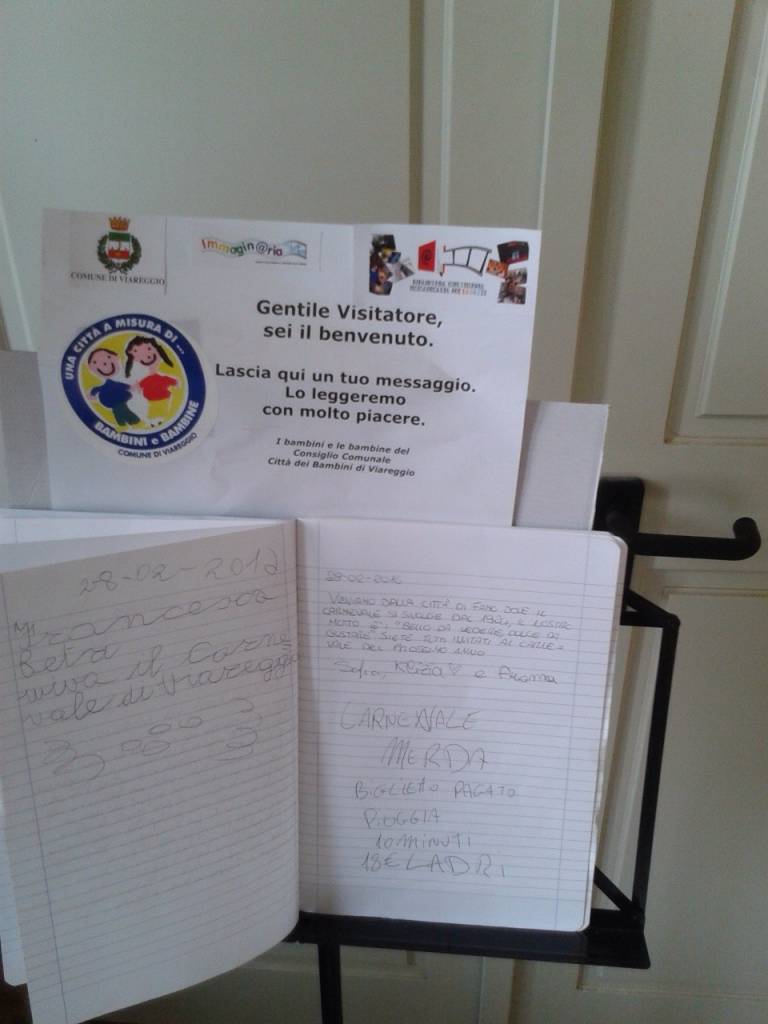 COMUNE DI VIAREGGIO
immagin@ria
UNA CITTÀ A MISURA DI...
BAMBINI e BAMBINE
COMUNE DI VIAREGGIO
Gentile Visitatore,
sei il benvenuto.
Lascia qui un tuo messaggio.
Lo leggeremo
con molto piacere.
I bambini e le bambine del
Consiglio Comunale
Città dei Bambini di Viareggio
28-02-2012
Francesca
Betra
viva il Carne
vale di Viareggio
28-02-
VENIAMO DALLA CITTÀ DI FANO DOVE IL
CARNEVALE SI SVOLGE DAL IL NOSTRO
MOTTO È: "BELLO DA VEDERE, DOLCE DA
GUSTARE" SIETE TUTTI INVITATI AL CARNE-
VALE DEL PROSSIMO ANNO
Sofia, e
CARNEVALE
MERDA
BIGLIETTO PAGATO
PIOGGIA
10 MINUTI
18€ LADRI